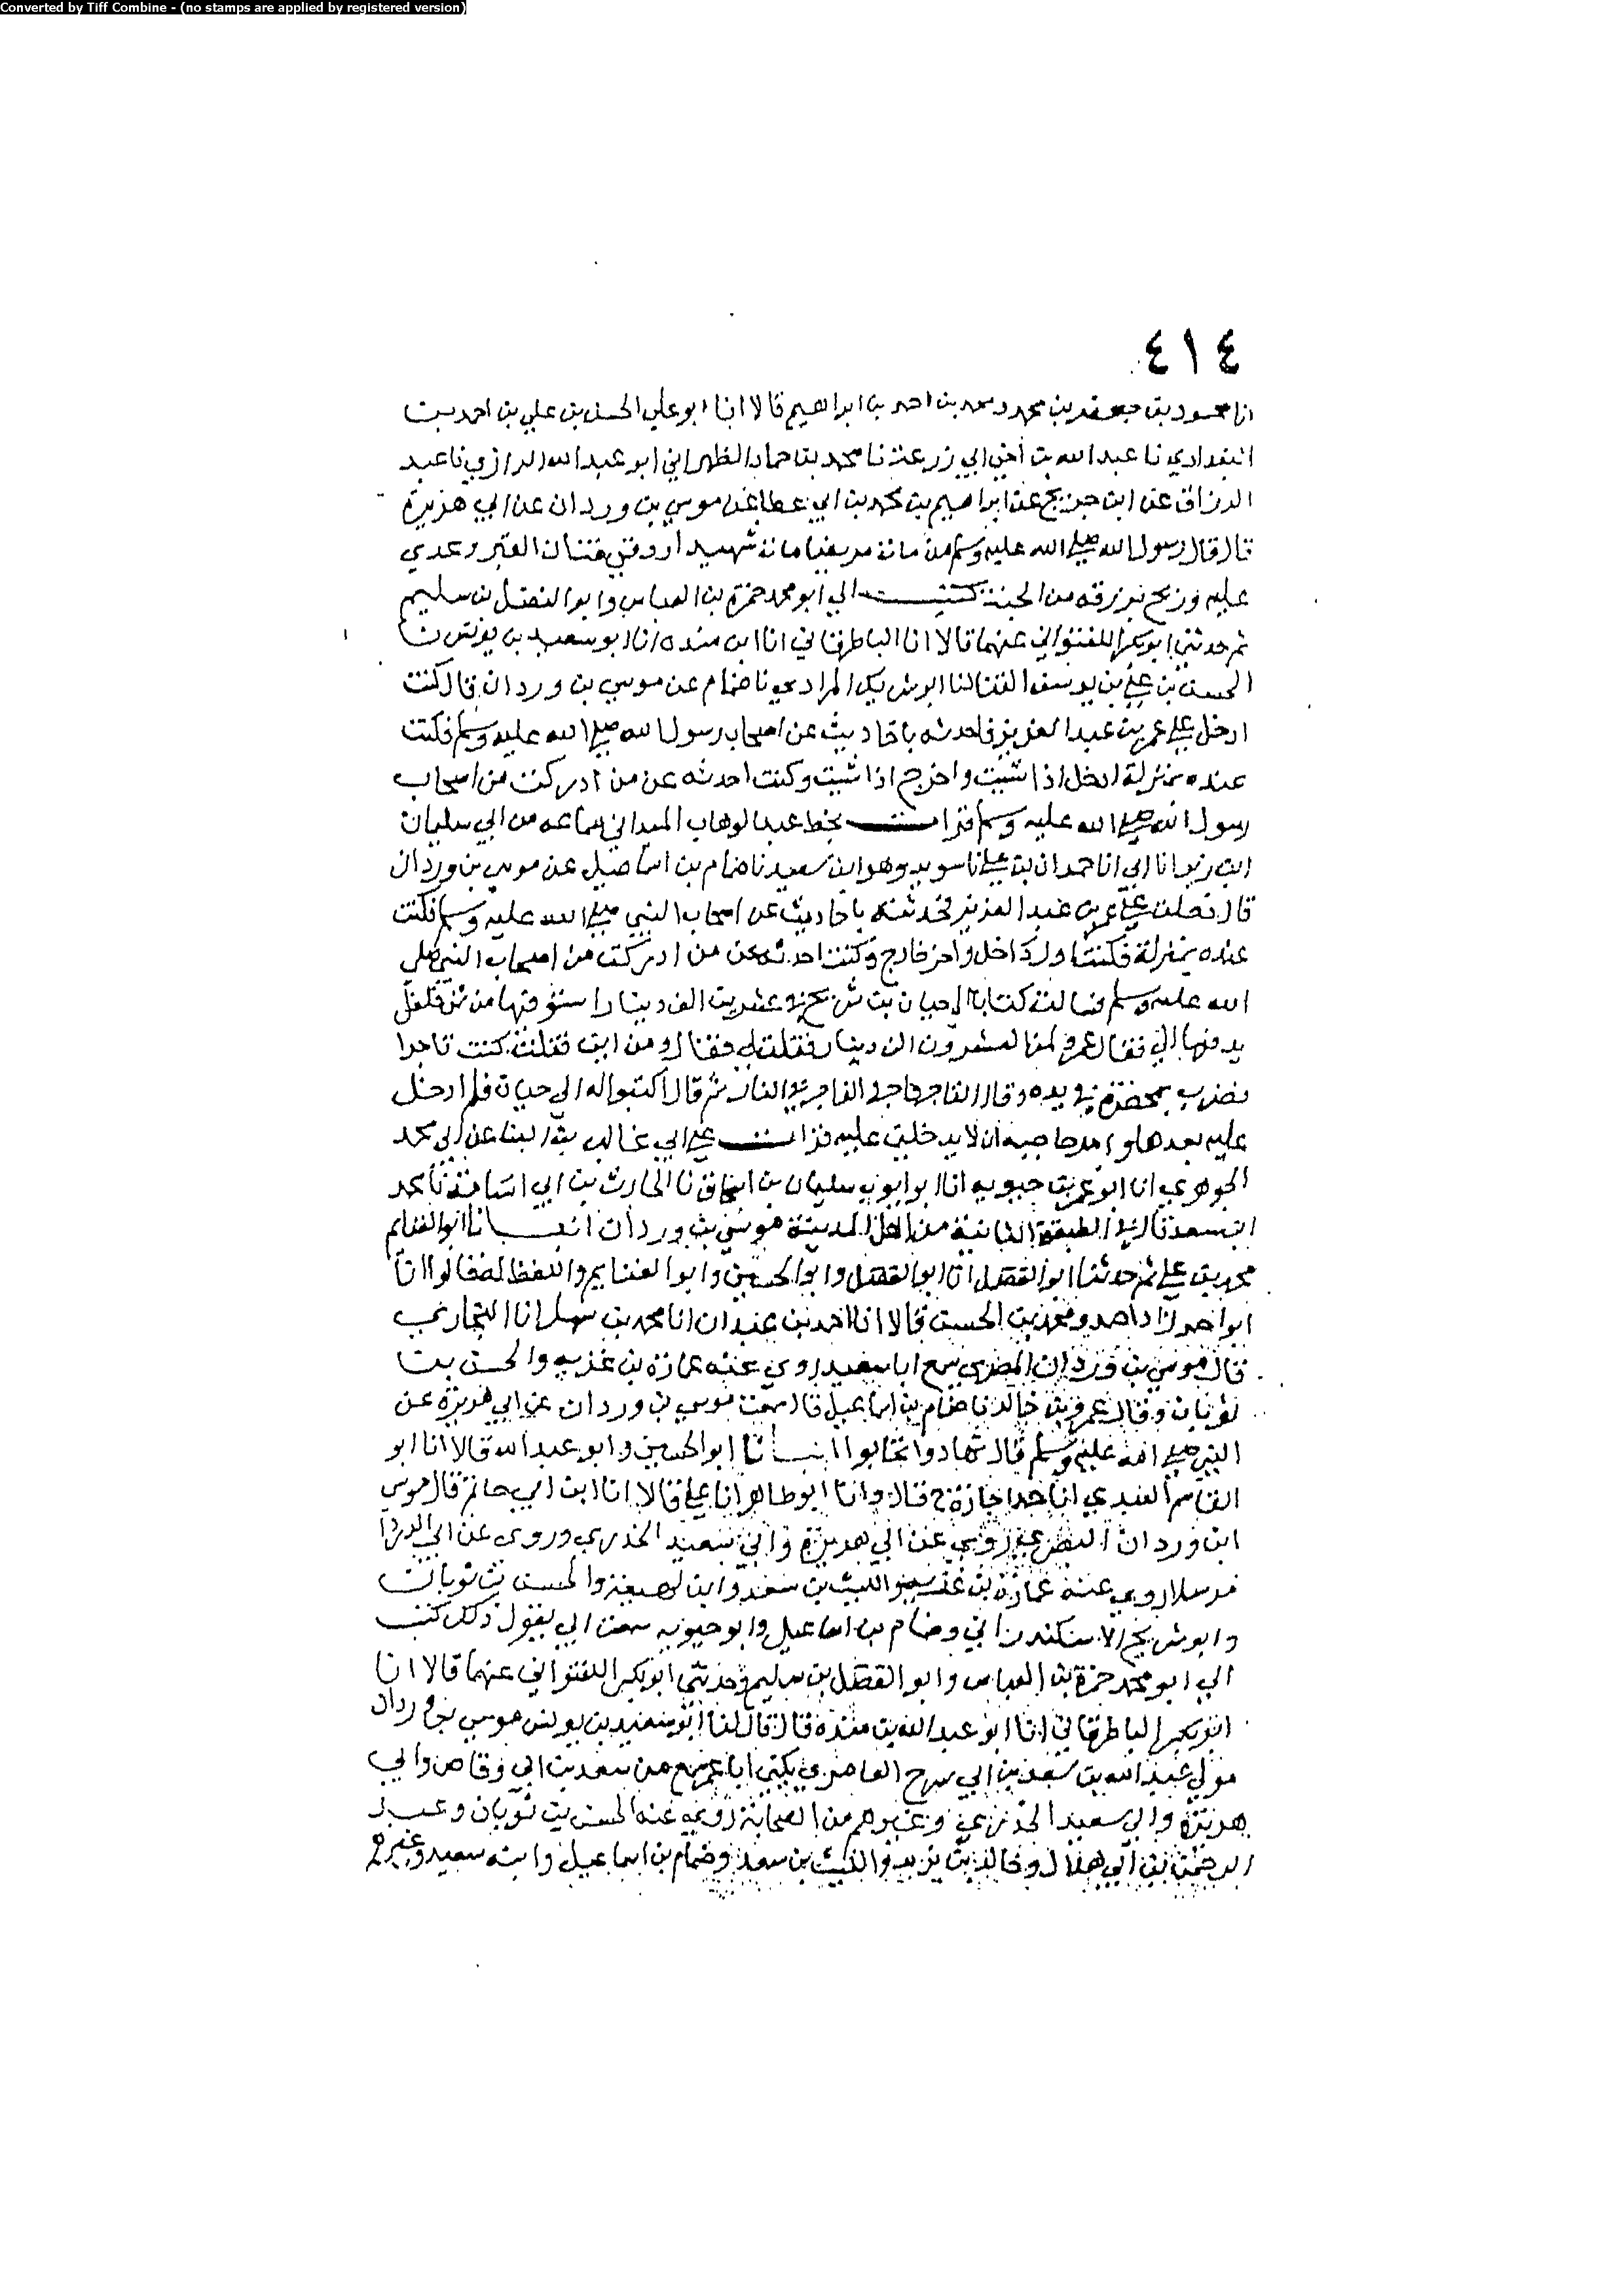 Converted by Tiff Combine - (no stamps are applied by registered version)
٤١٤
انا محمود بن جعفر بن محمد ومحمد بن احمد بن ابراهيم قالا انا ابو علي الحسن بن علي بن احمد بن
البغدادي نا عبد الله بن أخي ابي زرعة نا محمد بن حماد الظهراني ابو عبد الله الرازي نا عبد
الرزاق عن ابن جريج عن ابراهيم بن محمد بن ابي عطا عن موسي بن وردان عن ابي هريرة
قال قال رسول الله صلى الله عليه وسلم من مات مريضا مات شهيدا ووقي فتنان القبر وغدي
عليه وريح برزقه من الجنة كتب الي ابو محمد حمزة بن العباس وابو الفضل بن سليم
ثم حدثني ابو بكر اللفتواني عنهما قالا انا الباطرقاني انا ابن منده انا ابو سعيد بن يونس نا
الحسن بن علي بن يوسف نا ابو شريك المرادي نا ضمام عن موسي بن وردان قال كنت
ادخل على عمر بن عبد العزيز فاحدثه باحاديث عن اصحاب رسول الله صلى الله عليه وسلم فكنت
عنده بمنزلة ادخل اذا شيت واخرج اذا شيت وكنت احدثه عن من ادركت من اصحاب
رسول الله صلى الله عليه وسلم قرات بخط عبد الوهاب الميداني سماعه من ابي سليمان
ابن زبر انا ابي انا حمدان بن علي نا سويد وهو ابن سعيد نا ضمام بن اسماعيل عن موسي بن وردان
قال دخلت على عمر بن عبد العزيز فحدثته باحاديث عن اصحاب النبي صلى الله عليه وسلم فكنت
عنده بمنزلة فكنت اول داخل واخر خارج وكنت احدثه عن من ادركت من اصحاب النبي صلى
الله عليه وسلم فسالته كتابا الى حيان بن شريح في عشرين الف دينار استوفيها من ثمن فلفل
يدفعها الي فقال عمر لمن العشرون الف دينار فقلت لي فقال ومن اين فقلت كنت تاجرا
فضرب بمخصرة في يده وقال التاجر فاجر والفاجر في النار ثم قال اكتبوا له الى حيان فلم ادخل
عليه بعدها وامر حاجبه ان لا يدخلني عليه قرات علي ابي غالب بن البنا عن ابي محمد
الجوهري انا ابو عمر بن حيويه انا ابو ايوب سليمان بن اسحاق نا الحارث بن ابي اسامة نا محمد
ابن سعد قال في الطبقة الثانية من اهل المدينة موسي بن وردان انبانا ابو الغنايم
محمد بن علي ثم حدثنا ابو الفضل انا ابو الفضل وابو الحسين وابو الغنايم واللفظ له قالوا انا
ابو احمد زاد احمد ومحمد بن الحسن قالا انا احمد بن عبدان انا محمد بن سهل انا البخاري
قال موسي بن وردان المصري سمع ابا سعيد روي عنه عمارة بن غزيه والحسن بن
ثوبان وقال عمرو بن خالد نا ضمام بن اسماعيل قال سمعت موسي بن وردان عن ابي هريرة عن
النبي صلى الله عليه وسلم قال تهادوا تحابوا انبانا ابو الحسين وابو عبد الله قالا انا ابو
القاسم العبدي انا حمد اجازة ح قال وانا ابو طاهر انا علي قالا انا ابن ابي حاتم قال موسي
ابن وردان المصري روي عن ابي هريرة وابي سعيد الخدري وروى عن ابي الدردا
مرسلا روي عنه عمارة بن غزيه والليث بن سعد وابن لهيعة والحسن بن ثوبان
وابو شريح الاسكندراني وضمام بن اسماعيل وابو حيويه سمعت ابي يقول ذلك كتب
الي ابو محمد حمزة بن العباس وابو الفضل بن سليم وحدثني ابو بكر اللفتواني عنهما قالا انا
ابو بكر الباطرقاني انا ابو عبد الله بن منده قال قال لنا ابو سعيد بن يونس موسي بن وردان
مولي عبد الله بن سعد بن ابي سرح العامري يكنى ابا عمر سمع من سعد بن ابي وقاص وابي
هريرة وابي سعيد الخدري وغيرهم من الصحابة روي عنه الحسن بن ثوبان وعبد
الرحمن بن ابي هلال وخالد بن يزيد والليث بن سعد وضمام بن اسماعيل وابنه سعيد وغيرهم